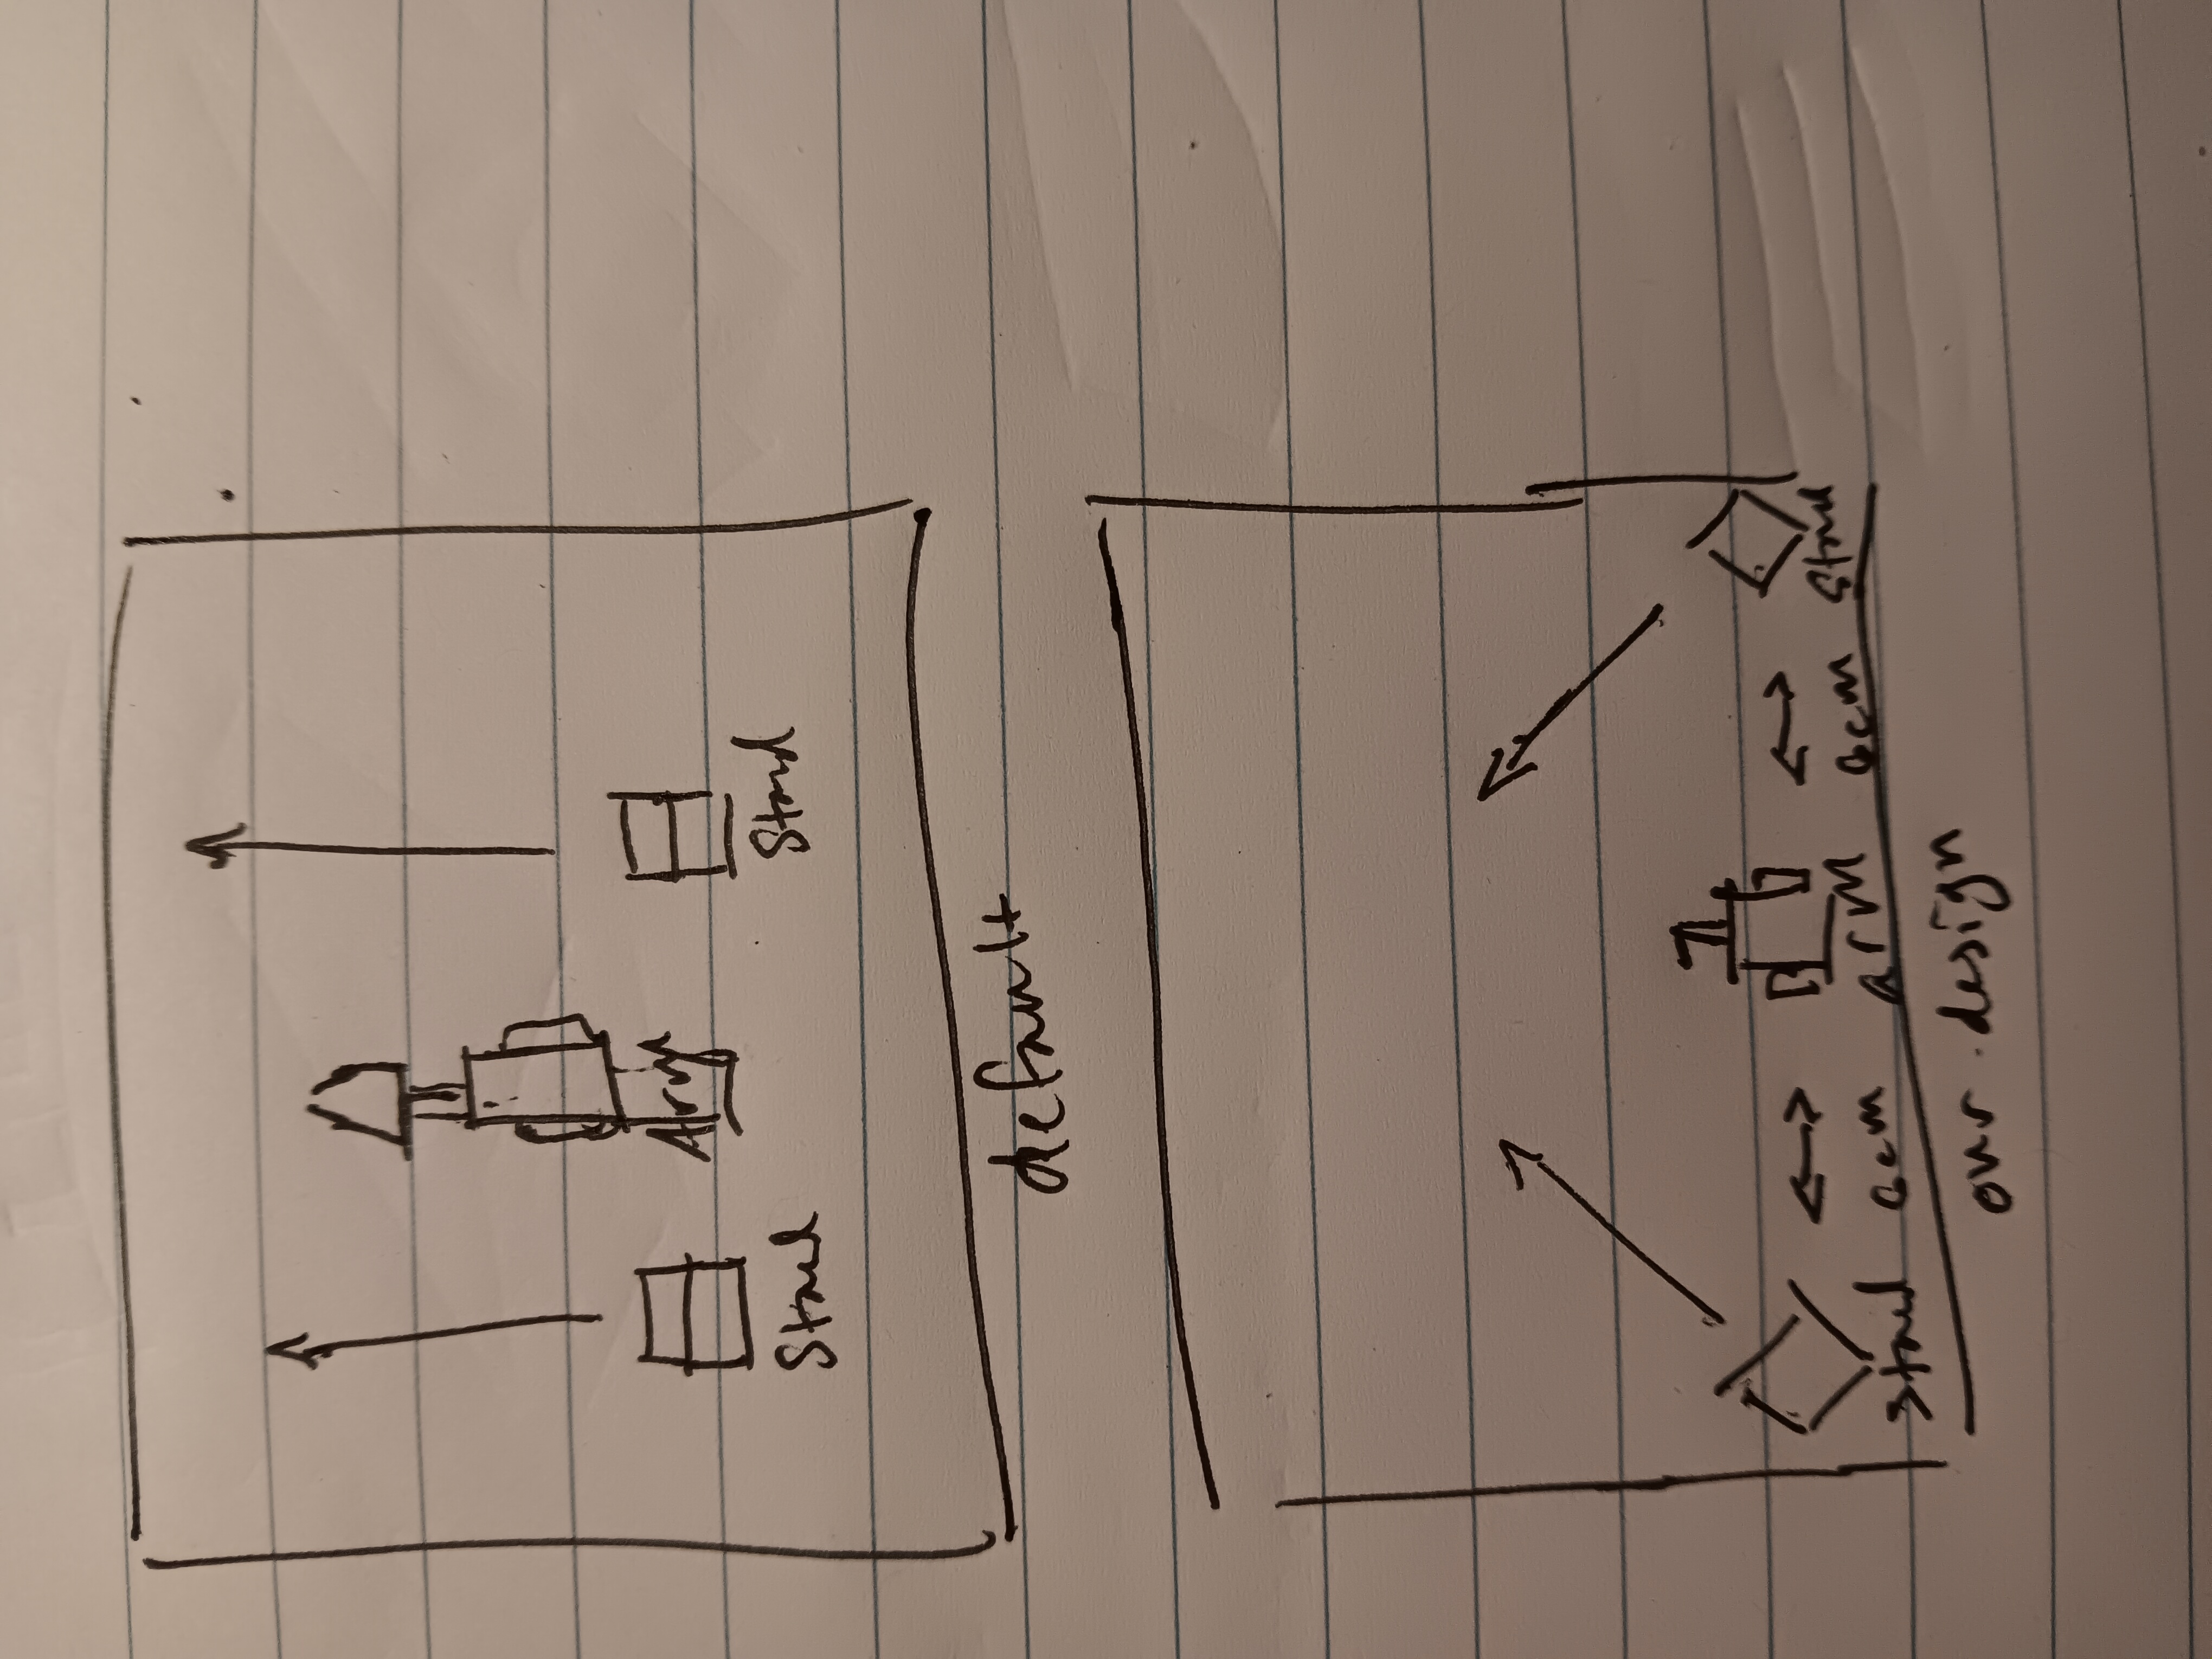 Arm
Stand
Stand
default
Stand
6cm
arm
6cm
Stand
our design